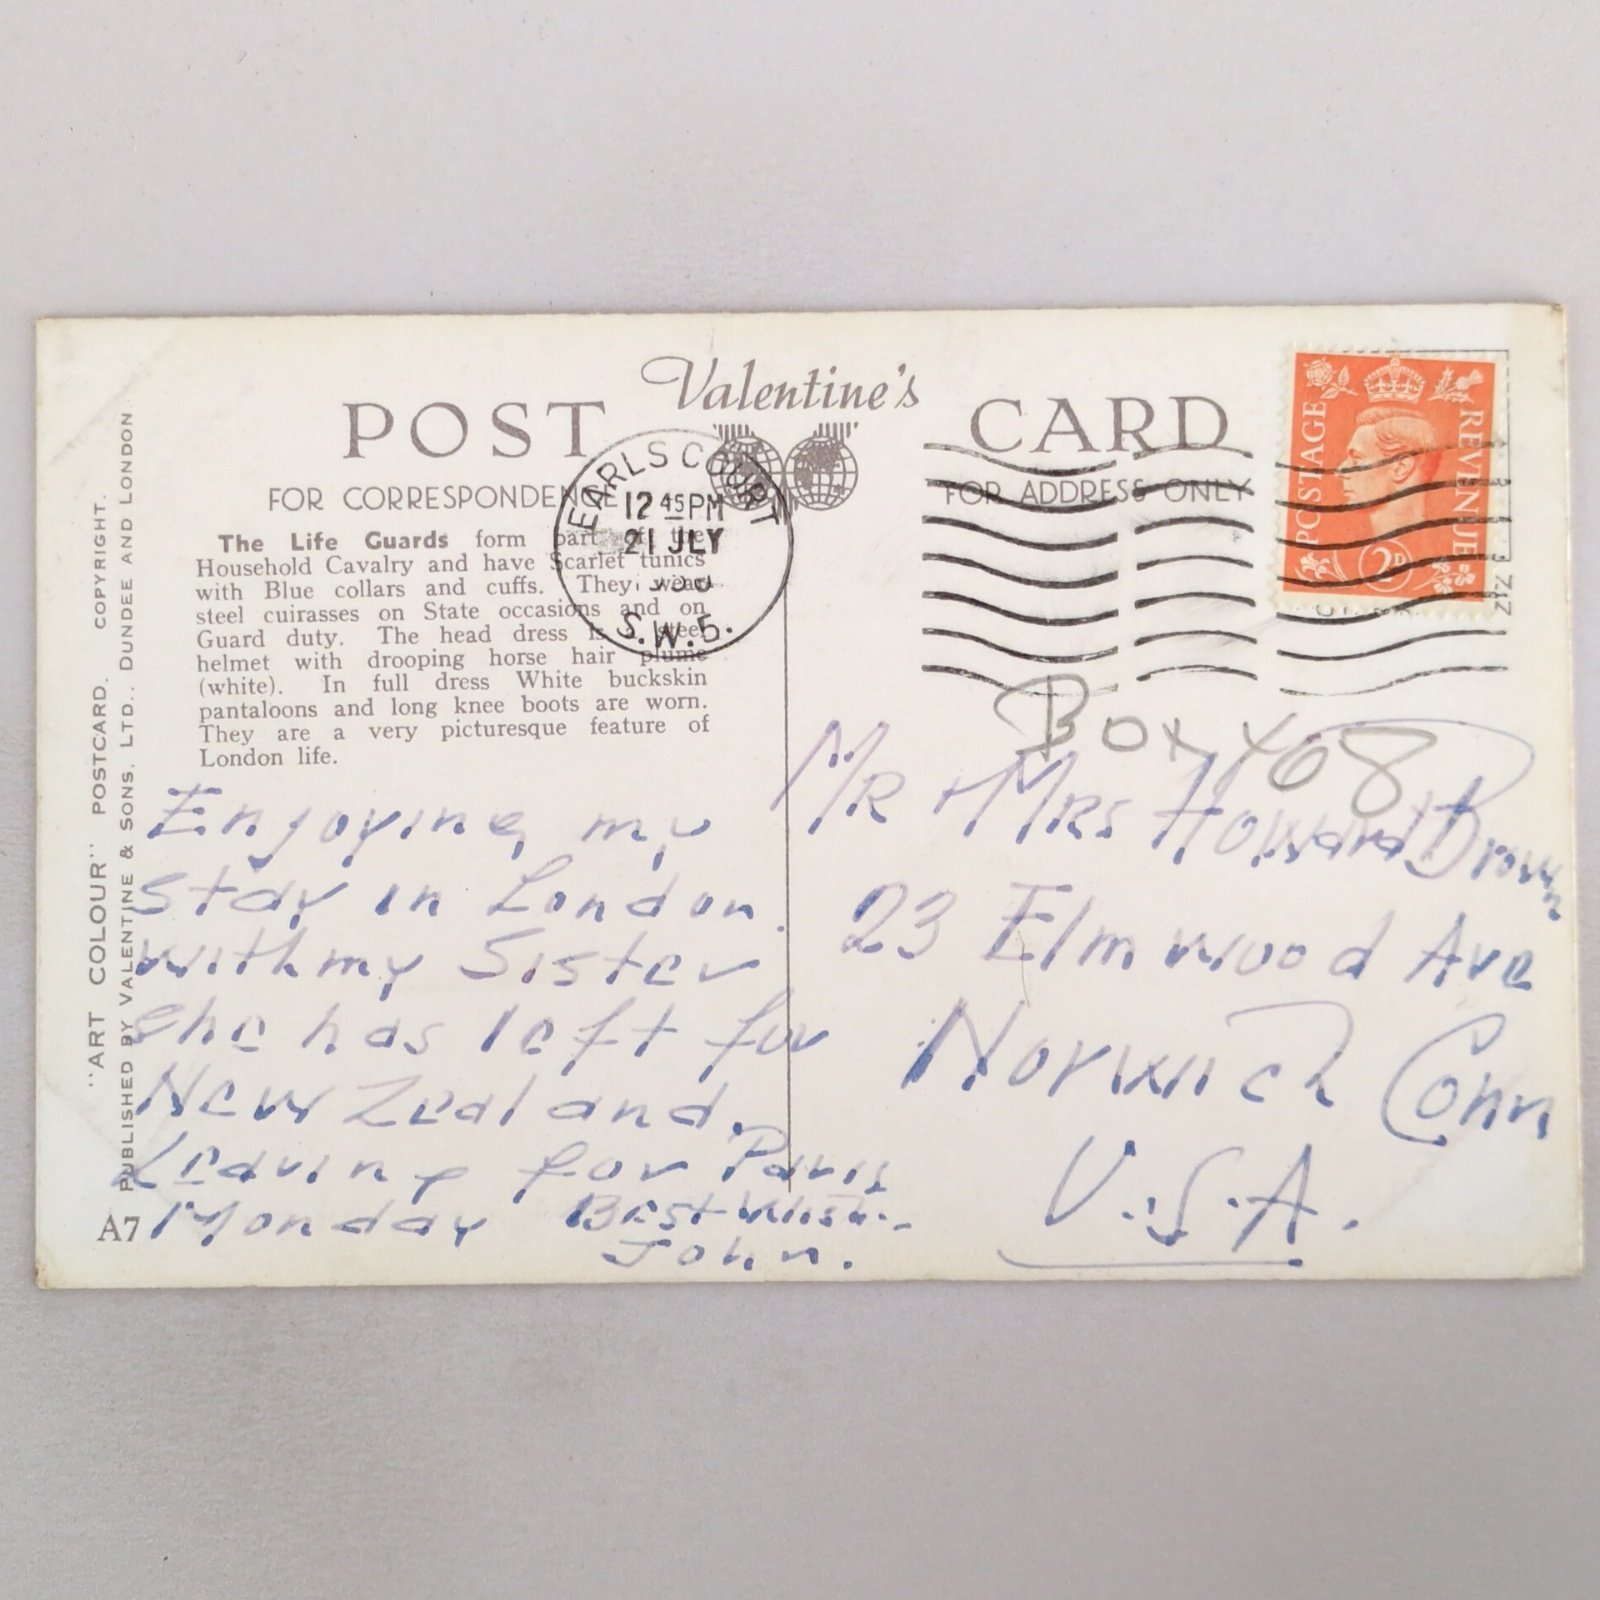 Valentine's
POST CARD
FOR CORRESPONDENCE
FOR ADDRESS ONLY
EARLS COURT
12 45 PM
21 JLY
S.W.5.
POSTAGE REVENUE
2D
The Life Guards form part of the
Household Cavalry and have Scarlet tunics
with Blue collars and cuffs. They wear
steel cuirasses on State occasions and on
Guard duty. The head dress is a steel
helmet with drooping horse hair plume
(white). In full dress White buckskin
pantaloons and long knee boots are worn.
They are a very picturesque feature of
London life.
"ART COLOUR" POSTCARD. COPYRIGHT.
PUBLISHED BY VALENTINE & SONS. LTD., DUNDEE AND LONDON
A7
Enjoying my
stay in London.
with my Sister
She has left for
New Zealand.
Leaving for Paris
Monday Best Wish
John.
Box 408
Mr + Mrs Howard Brown
23 Elmwood Ave
Norwich Conn
U.S.A.